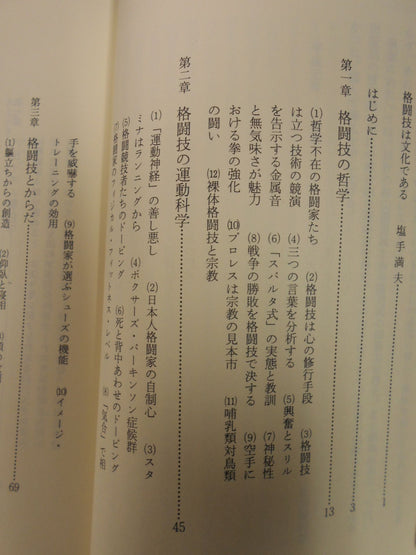 格闘技は文化である　塩手満夫
はじめに……3
第一章　格闘技の哲学……13
(1)哲学不在の格闘家たち　(2)格闘技は心の修行手段　(3)格闘技
は立つ技術の競演　(4)三つの言葉を分析する　(5)興奮とスリル
を告示する金属音　(6)「スパルタ式」の実態と教訓　(7)神秘性
と無気味さが魅力　(8)戦争の勝敗を格闘技で決する　(9)空手に
おける拳の強化　(10)プロレスは宗教の見本市　(11)哺乳類対鳥類
の闘い　(12)裸体格闘技と宗教
第二章　格闘技の運動科学……45
(1)「運動神経」の善し悪し　(2)日本人格闘家の自制心　(3)スタ
ミナはランニングから　(4)ボクサーズ・パーキンソン症候群
(5)格闘競技者たちのドーピング　(6)死と背中あわせのドーピング
(7)格闘家のフィジカル・フィットネス・レベル　(8)「気合」で相
手を威嚇する　(9)格闘家が選ぶシューズの機能　(10)イメージ・
トレーニングの効用
第三章　格闘技とからだ……69
(1)軀立ちからの創造　(2)仰臥と寝相